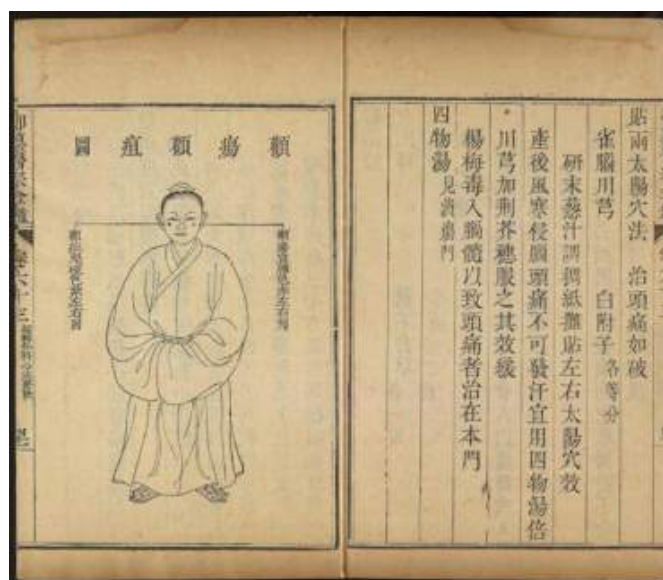 貼兩太陽穴法 治頭痛如破
雀腦川芎 白附子 各等分
研末葱汁調稠紙攤貼左右太陽穴效
產後風寒侵腦頭痛不可發汗宜用四物湯倍
川芎加荆芥穗服之其效緩
楊梅毒入腦髓以致頭痛者治在本門
四物湯 見潰瘍門
顴瘍顴疽圖
顴瘍宣腫色赤左右同
顴疽堅硬色紫左右同
御纂醫宗金鑑 卷六十三 編輯外科心法要訣